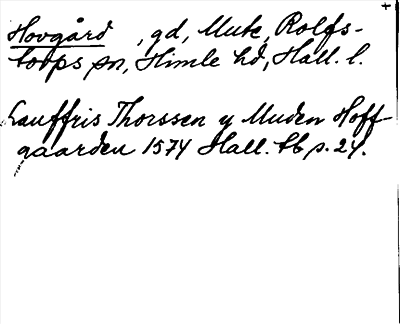 +
Hovgård, gd, Mutk, Rolfs-
torps sn, Himle hd, Hall. l.
Lauffris Thorssen y Muden Hoff
gaarden 1574 Hall. tb p. 24.